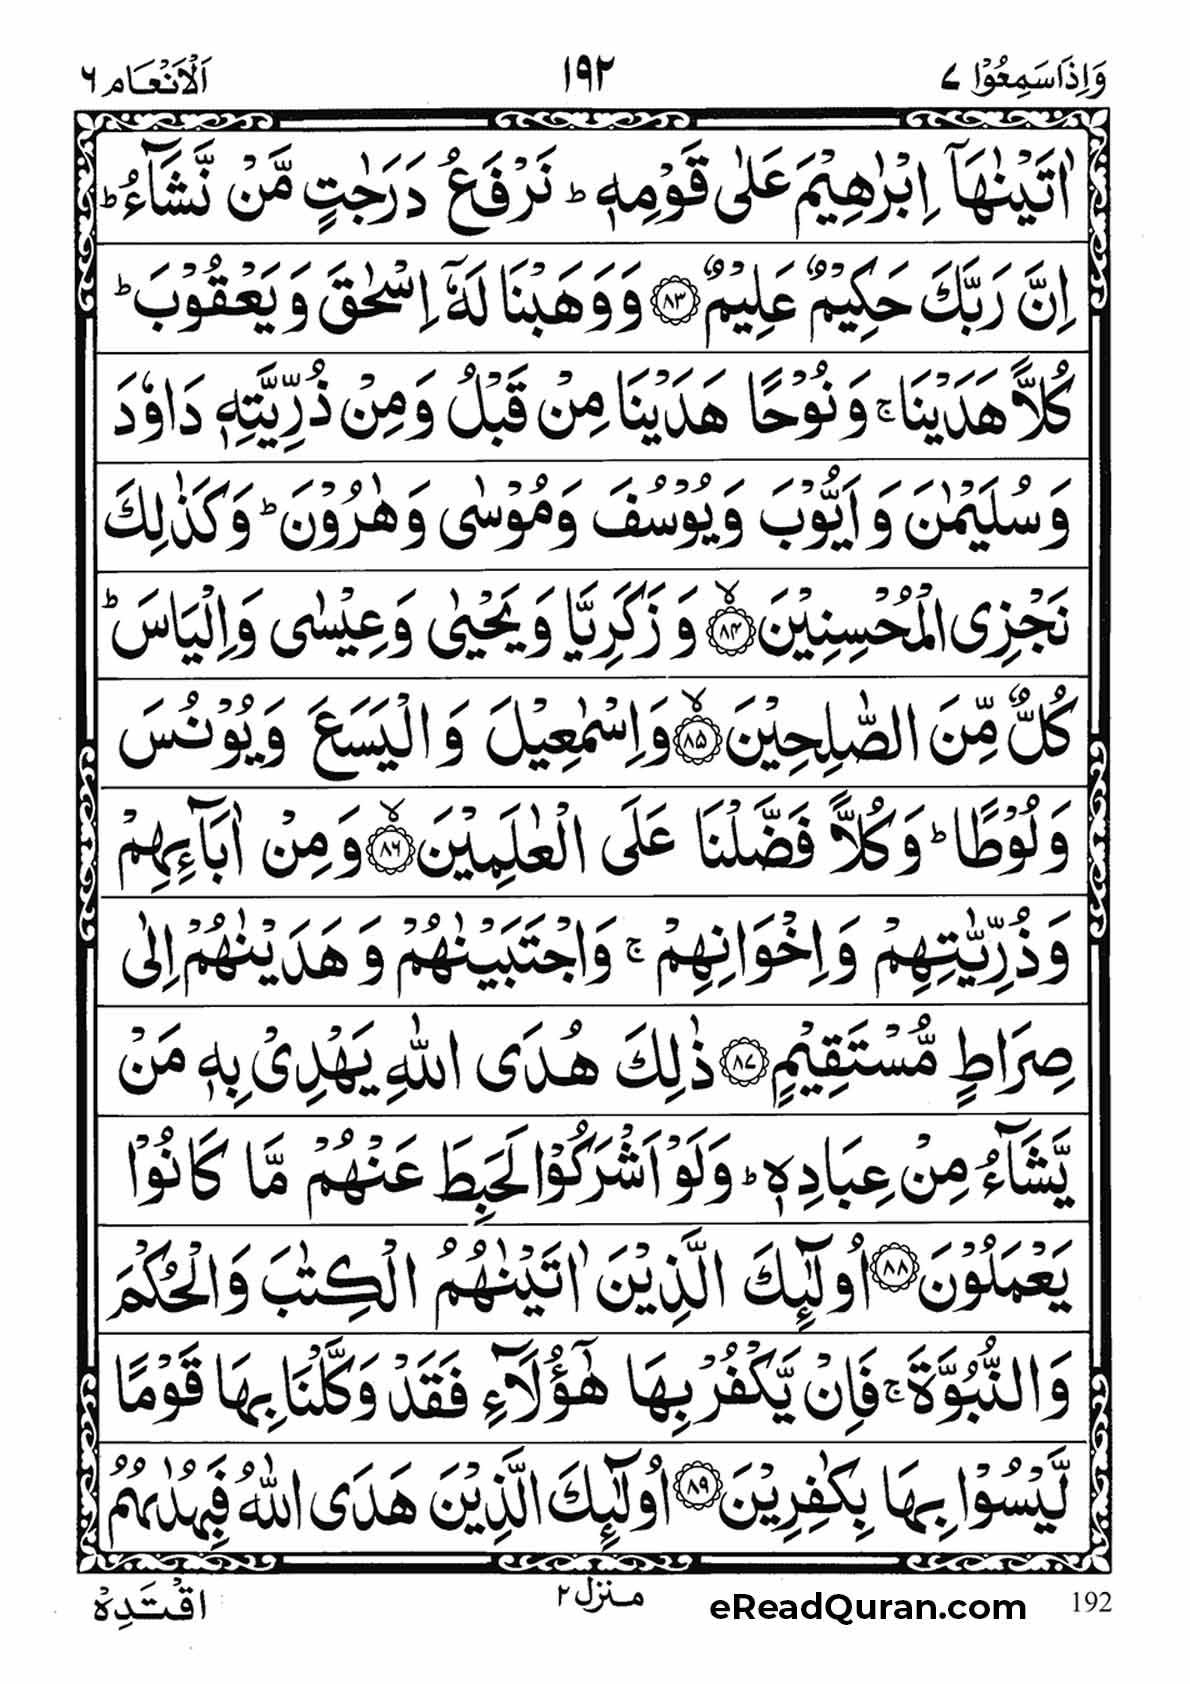 وَاِذَا سَمِعُوْا ٧ ١٩٢ اَلْاَنْعَام ٦
اٰتَيْنٰهَاۤ اِبْرٰهِيْمَ عَلٰى قَوْمِهٖ ؕ نَرْفَعُ دَرَجٰتٍ مَّنْ نَّشَآءُ ؕ
اِنَّ رَبَّكَ حَكِيْمٌ عَلِيْمٌ ﴿٨٣﴾ وَوَهَبْنَا لَهٗۤ اِسْحٰقَ وَيَعْقُوْبَ ؕ
كُلًّا هَدَيْنَا ۚ وَنُوْحًا هَدَيْنَا مِنْ قَبْلُ وَمِنْ ذُرِّيَّتِهٖ دَاوٗدَ
وَسُلَيْمٰنَ وَاَيُّوْبَ وَيُوْسُفَ وَمُوْسٰى وَهٰرُوْنَ ؕ وَكَذٰلِكَ
نَجْزِى الْمُحْسِنِيْنَ ۙ﴿٨٤﴾ وَزَكَرِيَّا وَيَحْيٰى وَعِيْسٰى وَاِلْيَاسَ ؕ
كُلٌّ مِّنَ الصّٰلِحِيْنَ ۙ﴿٨٥﴾ وَاِسْمٰعِيْلَ وَالْيَسَعَ وَيُوْنُسَ
وَلُوْطًا ؕ وَكُلًّا فَضَّلْنَا عَلَى الْعٰلَمِيْنَ ۙ﴿٨٦﴾ وَمِنْ اٰبَآئِهِمْ
وَذُرِّيّٰتِهِمْ وَاِخْوَانِهِمْ ۚ وَاجْتَبَيْنٰهُمْ وَهَدَيْنٰهُمْ اِلٰى
صِرَاطٍ مُّسْتَقِيْمٍ ﴿٨٧﴾ ذٰلِكَ هُدَى اللّٰهِ يَهْدِىْ بِهٖ مَنْ
يَّشَآءُ مِنْ عِبَادِهٖ ؕ وَلَوْ اَشْرَكُوْا لَحَبِطَ عَنْهُمْ مَّا كَانُوْا
يَعْمَلُوْنَ ﴿٨٨﴾ اُولٰٓئِكَ الَّذِيْنَ اٰتَيْنٰهُمُ الْكِتٰبَ وَالْحُكْمَ
وَالنُّبُوَّةَ ۚ فَاِنْ يَّكْفُرْ بِهَا هٰۤؤُلَآءِ فَقَدْ وَكَّلْنَا بِهَا قَوْمًا
لَّيْسُوْا بِهَا بِكٰفِرِيْنَ ﴿٨٩﴾ اُولٰٓئِكَ الَّذِيْنَ هَدَى اللّٰهُ فَبِهُدٰىهُمُ
192 eReadQuran.com منزل ٢ اقْتَدِهْ